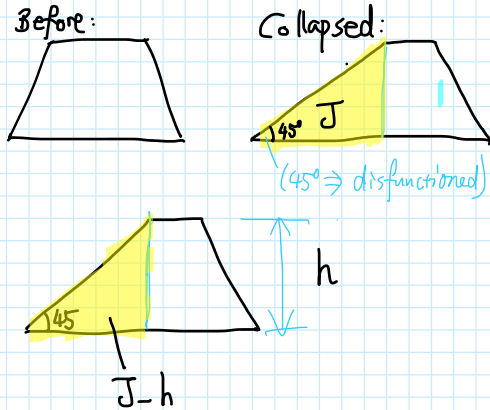 Before:
Collapsed:
J
45°
(45° ⇒ disfunctioned)
45
h
J-h